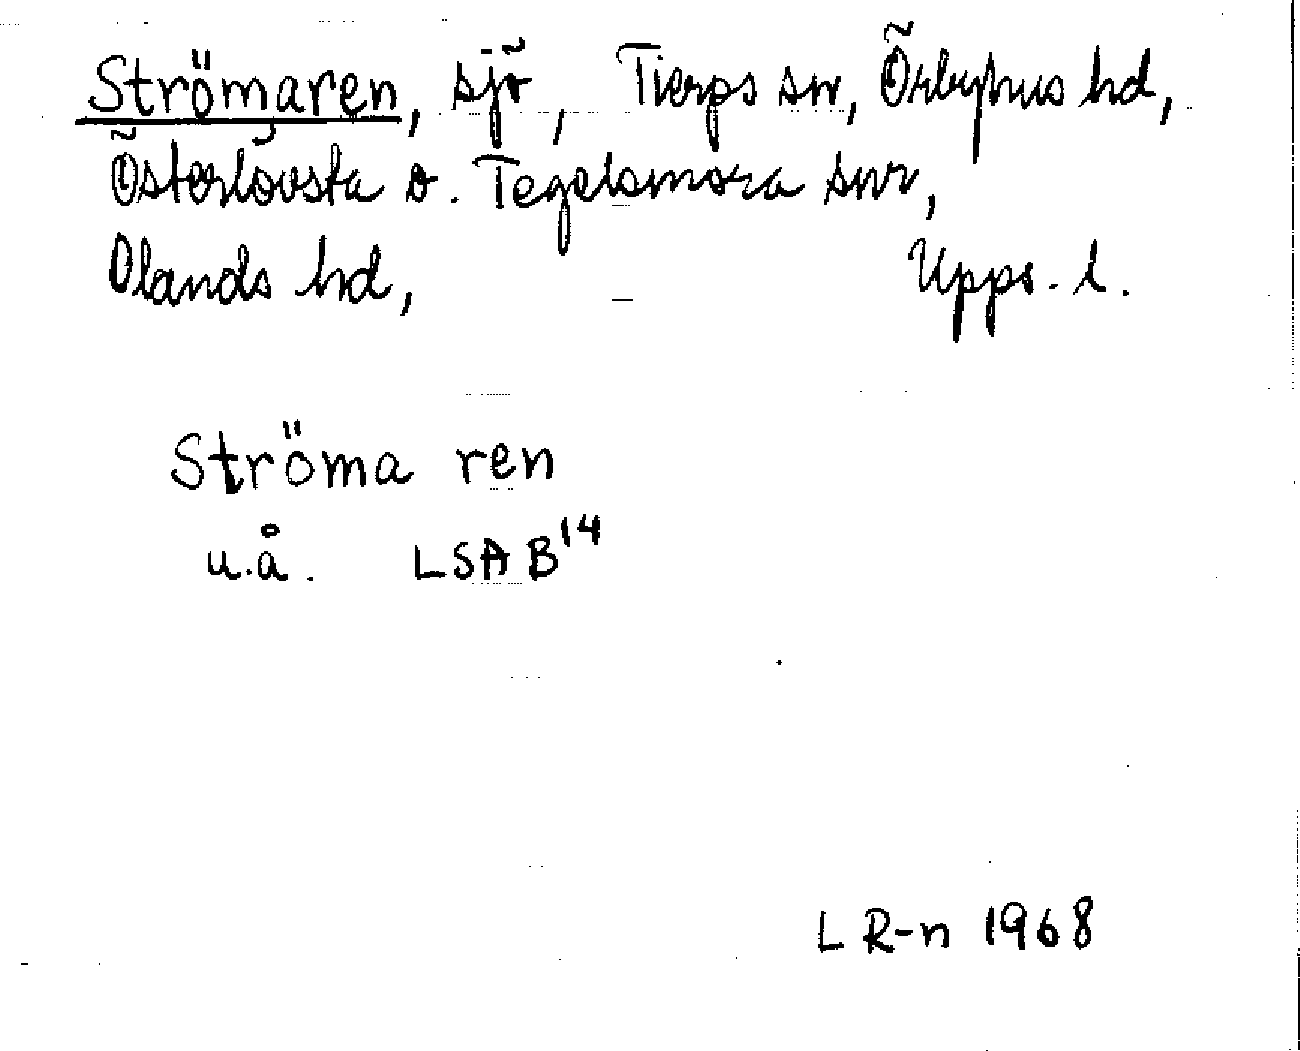 Strömaren, sjö, Tierps sn, Örbyhus hd,
Österlövsta o. Tegelsmora snr,
Olands hd, Upps. l.
Ströma ren
u.å. LSA B14
L R-n 1968